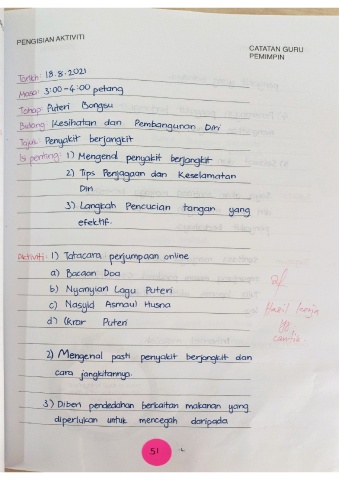 PENGISIAN AKTIVITI
CATATAN GURU
PEMIMPIN
Tarikh: 18.8.2021
Masa: 3:00-4:00 petang
Tahap: Puteri Bongsu
Bidang: Kesihatan dan Pembangunan Diri
Tajuk: Penyakit berjangkit
Isi penting: 1) Mengenal penyakit berjangkit
2) Tips Penjagaan dan Keselamatan
Diri
3) Langkah Pencucian tangan yang
efektif.
Aktiviti: 1) Tatacara perjumpaan online
a) Bacaan Doa
b) Nyanyian Lagu Puteri
c) Nasyid Asmaul Husna
d) Ikrar Puteri
Hasil kerja
cantik.
2) Mengenal pasti penyakit berjangkit dan
cara jangkitannya.
3) Diberi pendedahan berkaitan makanan yang
diperlukan untuk mencegah daripada
51